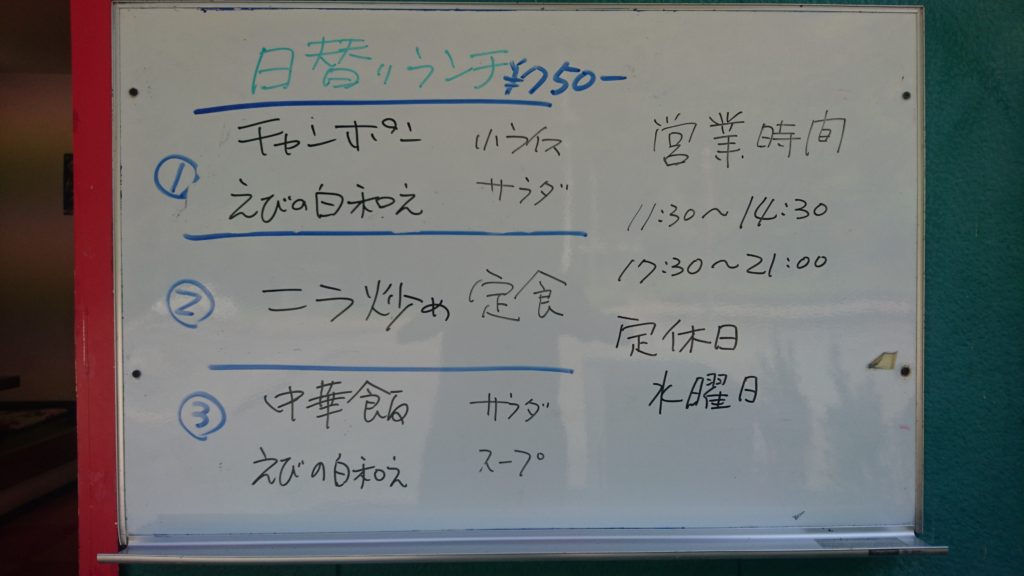 日替りランチ ¥750-
① チャンポン 小ライス
えびの白和え サラダ
② ニラ炒め 定食
③ 中華飯 サラダ
えびの白和え スープ
営業時間
11:30〜14:30
17:30〜21:00
定休日
水曜日